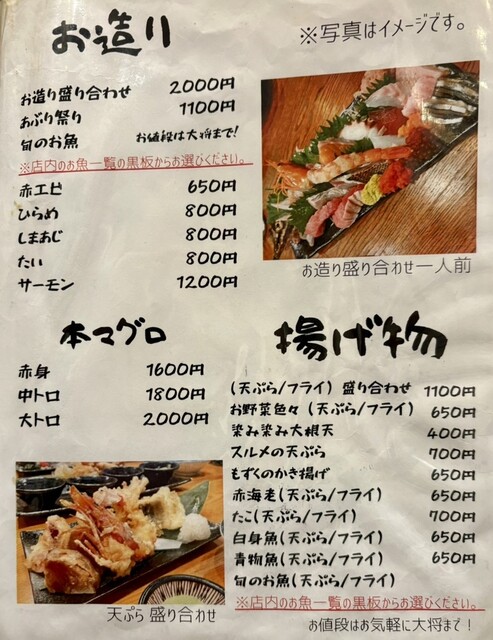 お造り
※写真はイメージです。
お造り盛り合わせ 2000円
あぶり祭り 1100円
旬のお魚 お値段は大将まで!
※店内のお魚一覧の黒板からお選びください。
赤エビ 650円
ひらめ 800円
しまあじ 800円
たい 800円
サーモン 1200円
お造り盛り合わせ一人前
本マグロ
赤身 1600円
中トロ 1800円
大トロ 2000円
天ぷら 盛り合わせ
揚げ物
(天ぷら/フライ) 盛り合わせ 1100円
お野菜色々 (天ぷら/フライ) 650円
染み染み大根天 400円
スルメの天ぷら 700円
もずくのかき揚げ 650円
赤海老(天ぷら/フライ) 650円
たこ(天ぷら/フライ) 700円
白身魚(天ぷら/フライ) 650円
青物魚(天ぷら/フライ) 650円
旬のお魚(天ぷら/フライ)
※店内のお魚一覧の黒板からお選びください。
お値段はお気軽に大将まで!